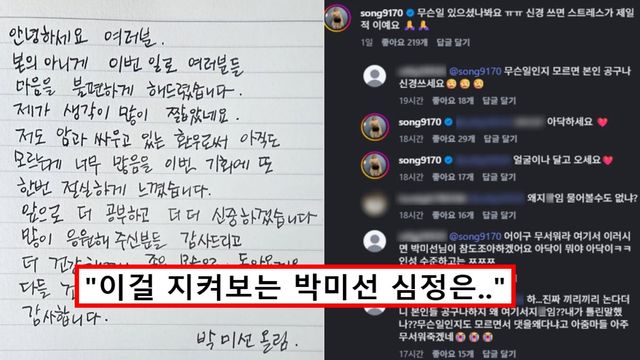 안녕하세요 여러분.
본의 아니게 이번 일로 여러분들
마음을 불편하게 해드렸습니다.
제가 생각이 많이 짧았네요.
저도 암과 싸우고 있는 환우로써 아직도
모르는게 너무 많음을 이번 기회에 또
한번 절실하게 느꼈습니다.
앞으로 더 공부하고 더 더 신중하겠습니다
많이 응원해 주신분들 감사드리고
더 건강
다들
감사합니다.
박미선 올림.
"이걸 지켜보는 박미선 심정은.."
song9170 무슨일 있으셨나봐요 ㅠㅠ 신경 쓰면 스트레스가 제일
적 이예요
1일 좋아요 219개 답글 달기
@song9170 무슨일인지 모르면 본인 공구나
신경쓰세요
19시간 좋아요 18개 답글 달기
song9170 아닥하세요
18시간 좋아요 29개 답글 달기
song9170 얼굴이나 달고 오세요
18시간 좋아요 17개 답글 달기
왜지 임 물어볼수도 없냐?
18시간 좋아요 16개 답글 달기
@song9170 어이구 무서워라 여기서 이러시
면 박미선님이 참도조아하겠어요 아닥이 뭐야 아닥이ㅋㅋ
인성 수준하고는 ㅉㅉㅉ
하...진짜 끼리끼리 논다더
니 본인들 공구나하지 왜 여기서지 임??내가 틀린말했
나??무슨일인지도 모르면서 댓을왜다냐고 아줌마들 아주
무서워죽겠네
16시간 좋아요 15개 답글 달기